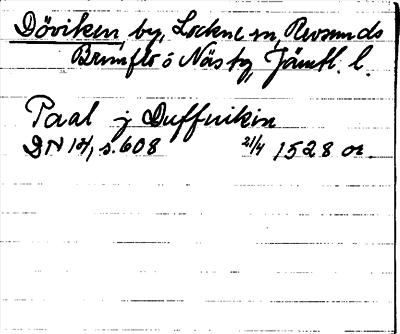 Döviken, by, Lockne sn, Revsunds
Brunflo o Näs tg, Jämtl. l.
Paal j Duffuikin
DN 14, s. 608 21/4 1528 or.